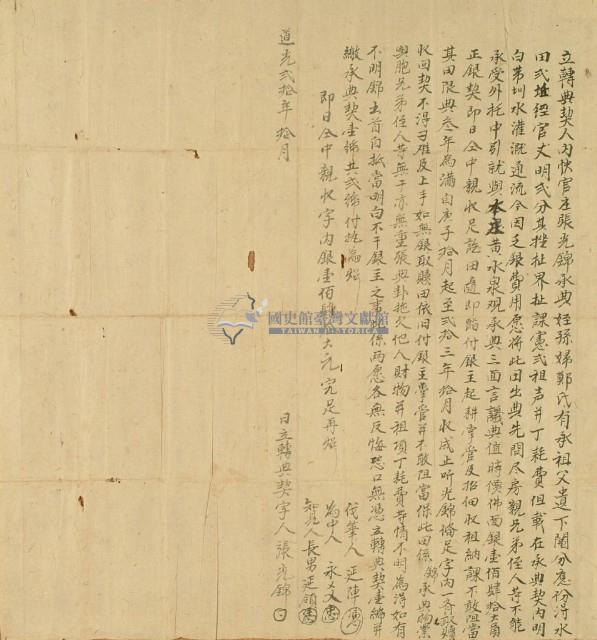 立轉典契人內快官庄張光錦承典姪孫婦鄭氏有承祖父遺下鬮分應份得水
田弍坵經官丈明弍分其坐址界址課憲弍祖声并丁耗費俱載在承典契內明
白帯圳水灌溉通流今因乏銀費用愿將此田出典先問尽房親兄弟侄人等不能
承受外托中引就與本庄黃水泉观承典三面言議典值時價佛面銀壹佰肆拾大員
正銀契即日仝中親收足訖田隨即踏付銀主起耕掌管及招佃收租納課不敢阻當
其田限典叁年為滿自庚子拾月起至弍拾三年拾月收成止听光錦偹足字內一斉取贖
收回契不得刁难及上手如無銀取贖田依旧付銀主掌管并不敢阻當保此田係錦承典物業
與胞兄弟侄人等無干亦無重張典掛拖欠他人財物并租項丁耗費等情不明為碍如有
不明錦出首自抵當明白不干銀主之事此係兩愿各無反悔恐口無憑立轉典契壹紙并
繳承典契壹紙共弍紙付执為炤
即日仝中親收字內銀壹佰肆拾大元完足再炤
代筆人 延陣
為中人 永文
知見人長男延頭
道光弍拾年拾月 日立轉典契字人張光錦
國史館臺灣文獻館
TAIWAN HISTORICA